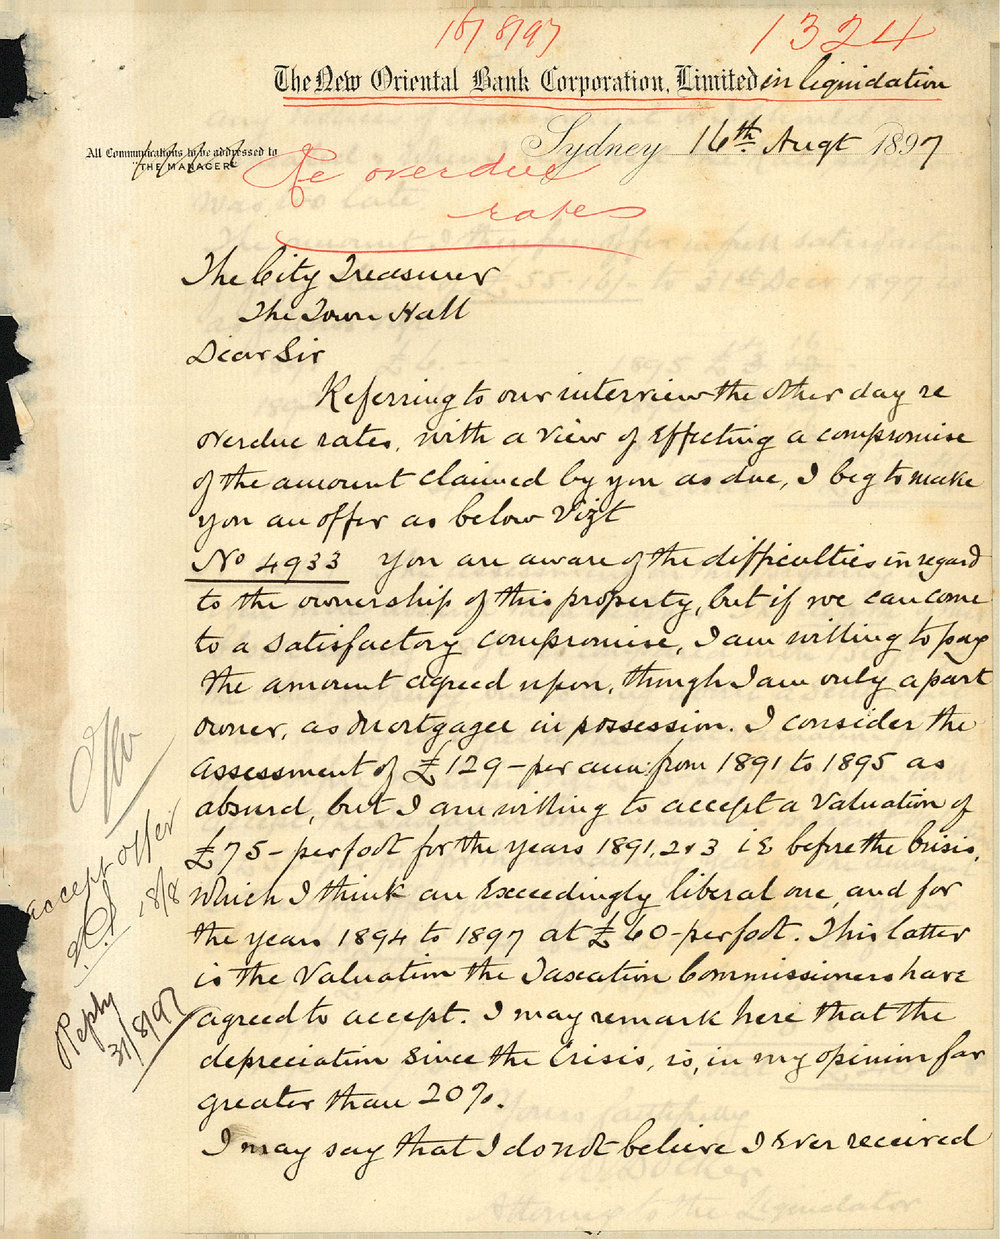 16/8/97
1324
The New Oriental Bank Corporation, Limited in liquidation
Sydney 16th Augt 1897
All Communications to be addressed to
"THE MANAGER"
Re overdue
rates
The City Treasurer
The Town Hall
Dear Sir
Referring to our interview the other day re
overdue rates, with a view of effecting a compromise
of the amount claimed by you as due, I beg to make
you an offer as below Vizt
No 4933 You are aware of the difficulties in regard
to the ownership of this property, but if we can come
to a satisfactory compromise, I am willing to pay
the amount agreed upon, though I am only a part
owner, as Mortgagee in possession. I consider the
assessment of £129 - per ann: from 1891 to 1895 as
absurd, but I am willing to accept a valuation of
£75 - per foot for the years 1891, 2 & 3 i E before the Crisis,
which I think an Exceedingly liberal one, and for
the years 1894 to 1897 at £60 - per foot. This latter
is the Valuation the Taxation Commissioners have
agreed to accept. I may remark here that the
depreciation Since the Crisis, is, in my opinion far
greater than 20%.
I may say that I do not believe I Ever received
accept offer
18/8
Reply
31/8/97